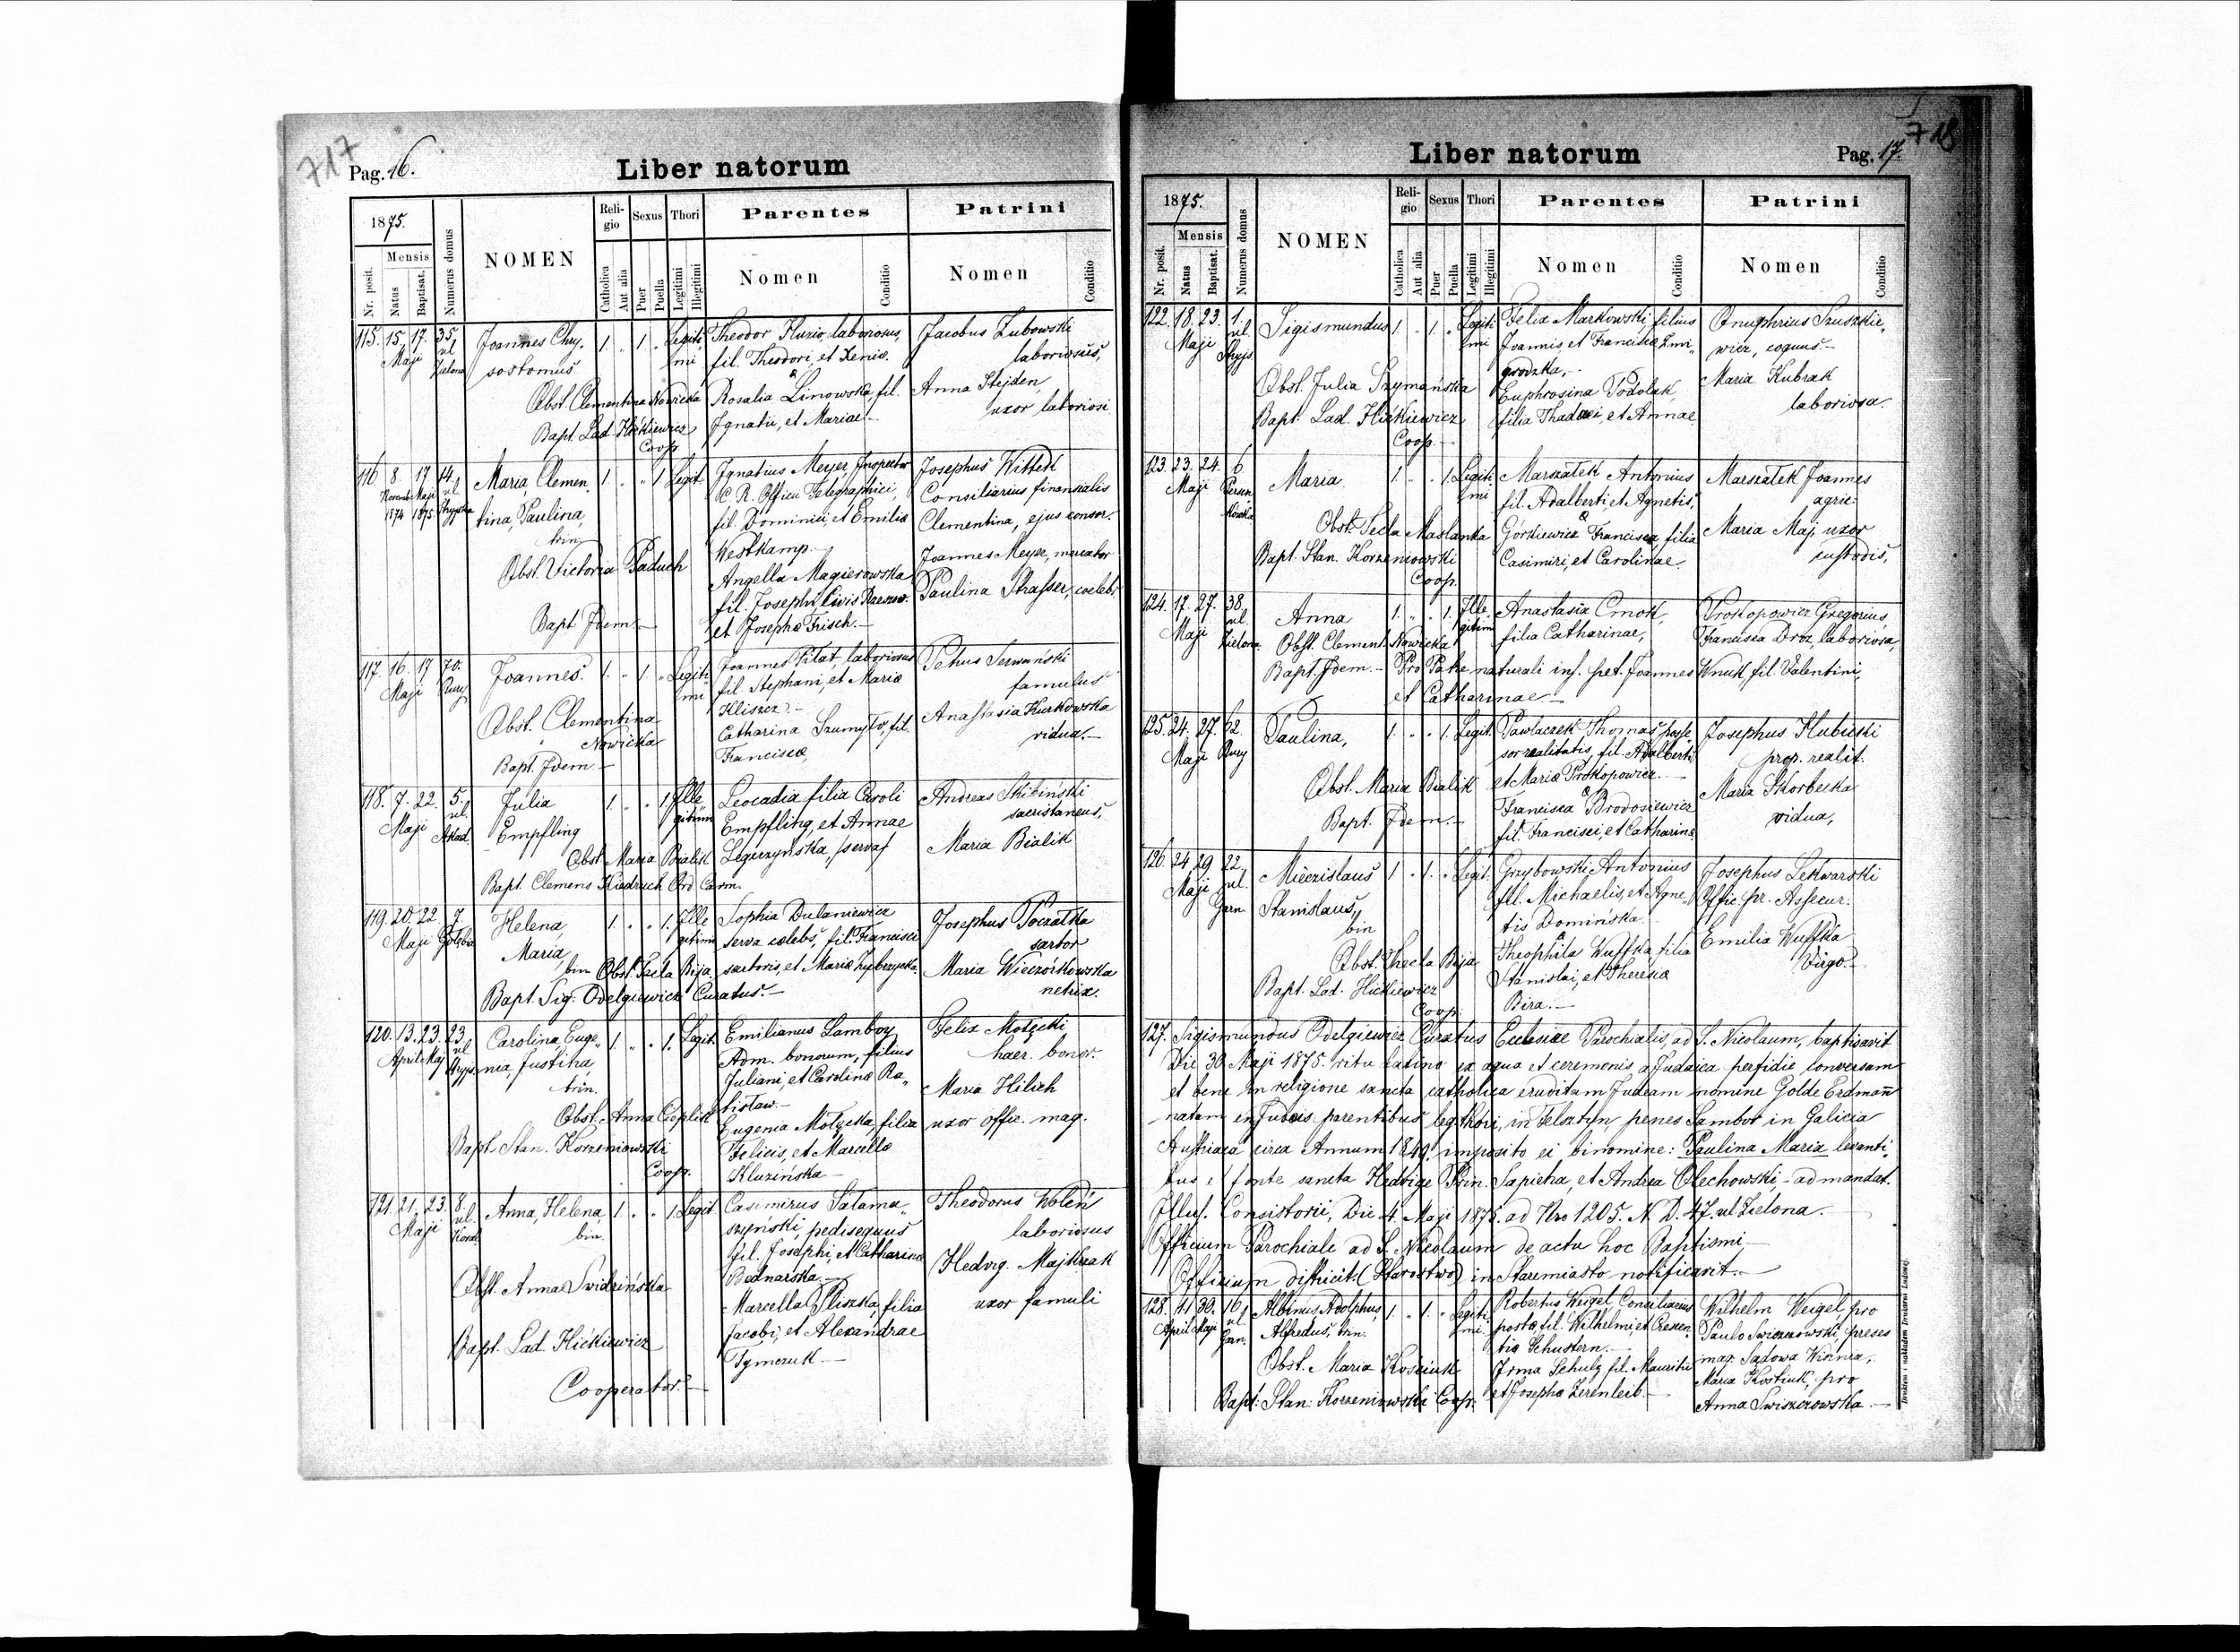 717
Pag. 16.
Liber natorum
1875.
Mensis
Nr. posit.
Natus
Baptisat.
Numerus domus
NOMEN
Reli-
gio
Catholica
Aut alia
Sexus
Puer
Puella
Thori
Legitimi
Illegitimi
Parentes
Nomen
Conditio
Patrini
Nomen
Conditio
115. 15. 17. 35. Joannes Chry- 1. " 1. " Legiti- Theodor Huzio, laboriosus, Jacobus Zubowski
Maji ul Zielona sostomus mi fil. Theodori, et Xenia. laboriosus,
Obst. Clementina Nowicka Rosalia Linowska, fil. Anna Hejden,
Bapt. Lad. Hićkiewicz Ignatii, et Mariae.— uxor laboriosi
Coop.
116 8. 17 14. Maria, Clemen- 1. " " 1 Legit. Ignatius Meyer, Inspector Josephus Wittek
1874 Maji 1875 ul Stryjska tina, Paulina, C. R. Officii Telegraphici, Consiliarius finansialis
trin. fil. Dominici, et Emiliæ Clementina, ejus consor.
Obst. Victoria Paduch Westkamp. Joannes Meyer, mercator
Angella Magierowska Paulina Strasser, coelebs
fil. Josephi, Civis Rzeszow.
Bapt. Idem.— et Josephæ Frisch.—
117. 16. 17 70. Joannes. 1. " 1. " Legiti- Joannes Pitat, laboriosus Petrus Serwański
Maji Rury mi fil. Stephani, et Mariæ famulus
Kliszcz.— Anastasia Kurkowska
Obst. Clementina Catharina Szumyło, fil. vidua.—
Nowicka Franciscæ,
Bapt. Idem.—
118. 7. 22. 5. Julia 1. " " 1. Ille- Leocadia filia Caroli Andreas Skibiński
Maji ul. Akad. Empfling gitimi Empfling, et Annae sacristaneus,
Obst. Maria Bialik Leguzynska, (serva) Maria Bialik
Bapt. Clemens Kiedruch Ord. Carm.
119. 20. 22. 7 Helena, 1. " " 1. Ille- Sophia Dulaniewicz Josephus Początka
Maji Gołębia Maria, gitimi serva cœlebs, fil. Francisci sartor
bin Obst. Tecla Bija. sartoris, et Mariæ Maria Wieczórkowska
Bapt. Sig. Odelgiewicz Curatus.— netrix.
120. 13. 23. 23. Carolina, Euge- 1. " " 1. Legit. Emilianus Lamboy Felix Mołęcki
April. Maj ul Stryjs. nia, Justina, Adm. bonorum, filius haer. bonor.
trin. Juliani, et Carolinæ Ra- Maria Hilich
Obst. Anna Cieplik tislaw.— uxor offic. mag.
Bapt. Stan. Korzeniowski Eugenia Mołęcka, filia
Coop. Felicis, et Marcellæ
Kluzińska—
121. 21. 23. 8. Anna, Helena, 1. " " 1. Legit. Casimirus Salama- Theodorus Woleń
Maji ul. bin. szyński, pedisequus laboriosus
fil. Josephi, et Catharinæ Hedvig. Majkrzak
Obst. Anna Swidzińska Bednarska.— uxor famuli
Marcella Pliszka, filia
Bapt. Lad. Hićkiewicz Jacobi, et Alexandrae
Cooperator.— Tymczuk.—
718
Liber natorum
Pag. 17.
1875.
Mensis
Nr. posit.
Natus
Baptisat.
Numerus domus
NOMEN
Reli-
gio
Catholica
Aut alia
Sexus
Puer
Puella
Thori
Legitimi
Illegitimi
Parentes
Nomen
Conditio
Patrini
Nomen
Conditio
122. 18. 23. 1. Sigismundus 1. " 1. " Legiti- Felix Markowski, filius Onuphrius Szuszkie-
Maji ul. Stryjs. mi Joannis, et Franciscæ Zmi- wicz, coquus.—
grodzka,— Maria Kubrak
Obst. Julia Szymańska Euphrosina Podolak, laboriosa.
Bapt. Lad. Hićkiewicz filia Thadaei, et Annae
Coop.—
123. 23. 24. 6. Maria. 1. " " 1. Legiti- Marszałek Antonius Marszałek Joannes
Maji mi fil. Adalberti, et Agnetis, agric.
Obst. Tecla Maślanka Górkiewicz Francisca filia Maria Maj, uxor
Bapt. Stan. Korzeniowski Casimiri, et Carolinae. custodis,
Coop.
124. 17. 27. 38. Anna 1. " " 1. Ille- Anastasia Cmok, Prokopowicz Gregorius,
Maji ul. Zielona Obst. Clement. Nowicka gitimi filia Catharinae, Francisca Droz, laboriosa,
Bapt. Idem.— Pro Patre naturali ins. pet. Joannes Wnuk, fil. Valentini,
et Catharinae.—
125. 24. 27. 62. Paulina, 1. " " 1. Legit. Pawlaczek Thomas posse- Josephus Hubicki
Maji Rury sor realitatis, fil. Adalberti prop. realit.
Obst. Maria Bialik et Mariæ Prokopowicz.— Maria Skorbecka
Bapt. Idem.— Francisca Brodosiewicz vidua,
fil. Francisci, et Catharinæ
126. 24. 29. 22. Miecislaus 1. " 1. " Legit. Grzybowski Antonius Josephus Lekwarski
Maji ul. Garn. Stanislaus, fil. Michaelis, et Agne- Offic. pr. Assecur.
bin tis Domińska. Emilia Wuffka
Obst. Thecla Bija Theophila Wuffka filia Virgo.—
Bapt. Lad. Hićkiewicz Stanislai, et Theresiæ
Coop. Bira.—
127. Sigismundus Odelgiewicz Curatus Ecclesiae Parochialis, ad S. Nicolaum, baptisavit
Die 30. Maji 1875. ritu latino ex aqua et ceremonis a Judaica perfidie conversam
et bene in religione sancta catholica eruditam Judeam nomine Golde Erdmann
natam ex Judeis parentibus leg. thori, in Felsztyn penes Sambor in Galicia
Austriaca circa Annum 1849. imposito ei binomine: Paulina Maria levanti-
bus e fonte sancta Hedvige Prin. Sapieha, et Andrea Olechowski,— ad mandat.
Illus. Consistorii, Die 4. Maji 1875. ad Nro 1205. N. D. 47. ul Zielona.—
Officium Parochiale ad S. Nicolaum de actu hoc Baptismi—
Offizium district. (Starostwo) in Staremiasto notificavit.—
128. 11. 30. 16. Albinus, Adolphus, 1. " 1. " Legiti- Robertus Weigel, Consiliarius Wilhelm Weigel, pro
April Maji ul. Garn. Alfredus, trin. mi. postæ, fil. Wilhelmi, et Crescen- Paulo Swiszczowski, preses
Obst. Maria Kośniuk tiæ Schustern.— mag. Sądowa Wisznia,
Bapt. Stan. Korzeniowski Coop. Irma Schulz fil. Mauritii Maria Kostiuk, pro
et Josepha Zerenleib.— Anna Swiszczowska.—